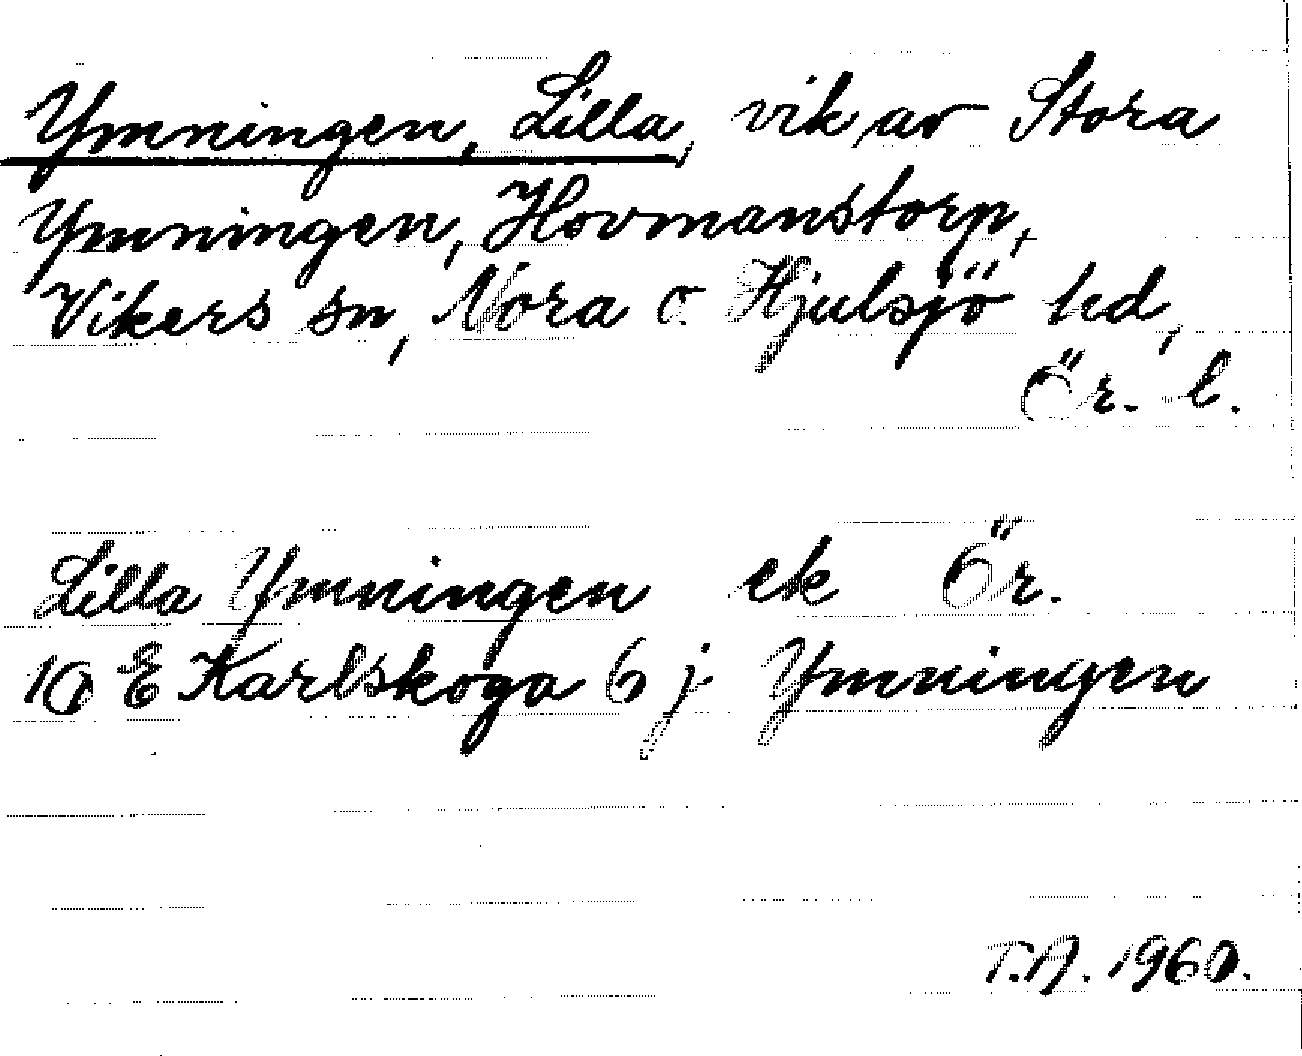 Ymningen, Lilla, vik av Stora
Ymningen, Hovmanstorp,
Vikers sn, Nora o. Hjulsjö hd,
Ör. l.
Lilla Ymningen ek Ör.
10 E Karlskoga 6 j Ymningen
T.A. 1960.